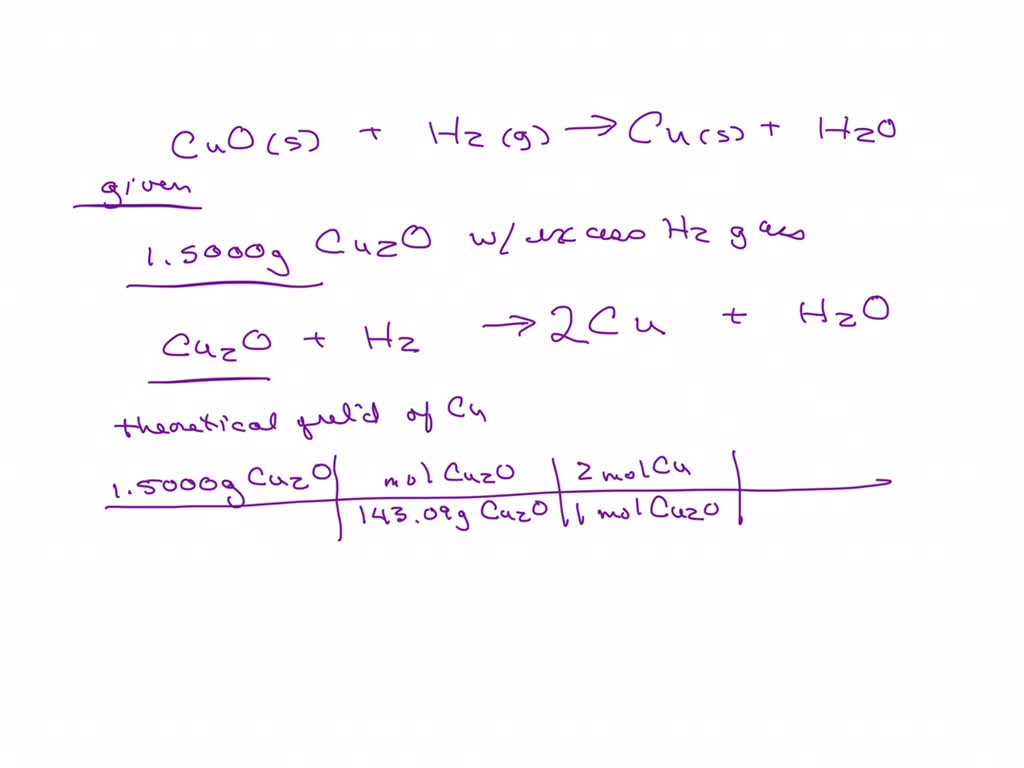 CuO(s) + H2(g) → Cu(s) + H2O
given
1.5000g Cu2O w/excess H2 gas
Cu2O + H2 → 2Cu + H2O
theoretical yield of Cu
1.5000g Cu2O | mol Cu2O | 2 mol Cu |
143.09g Cu2O | 1 mol Cu2O |